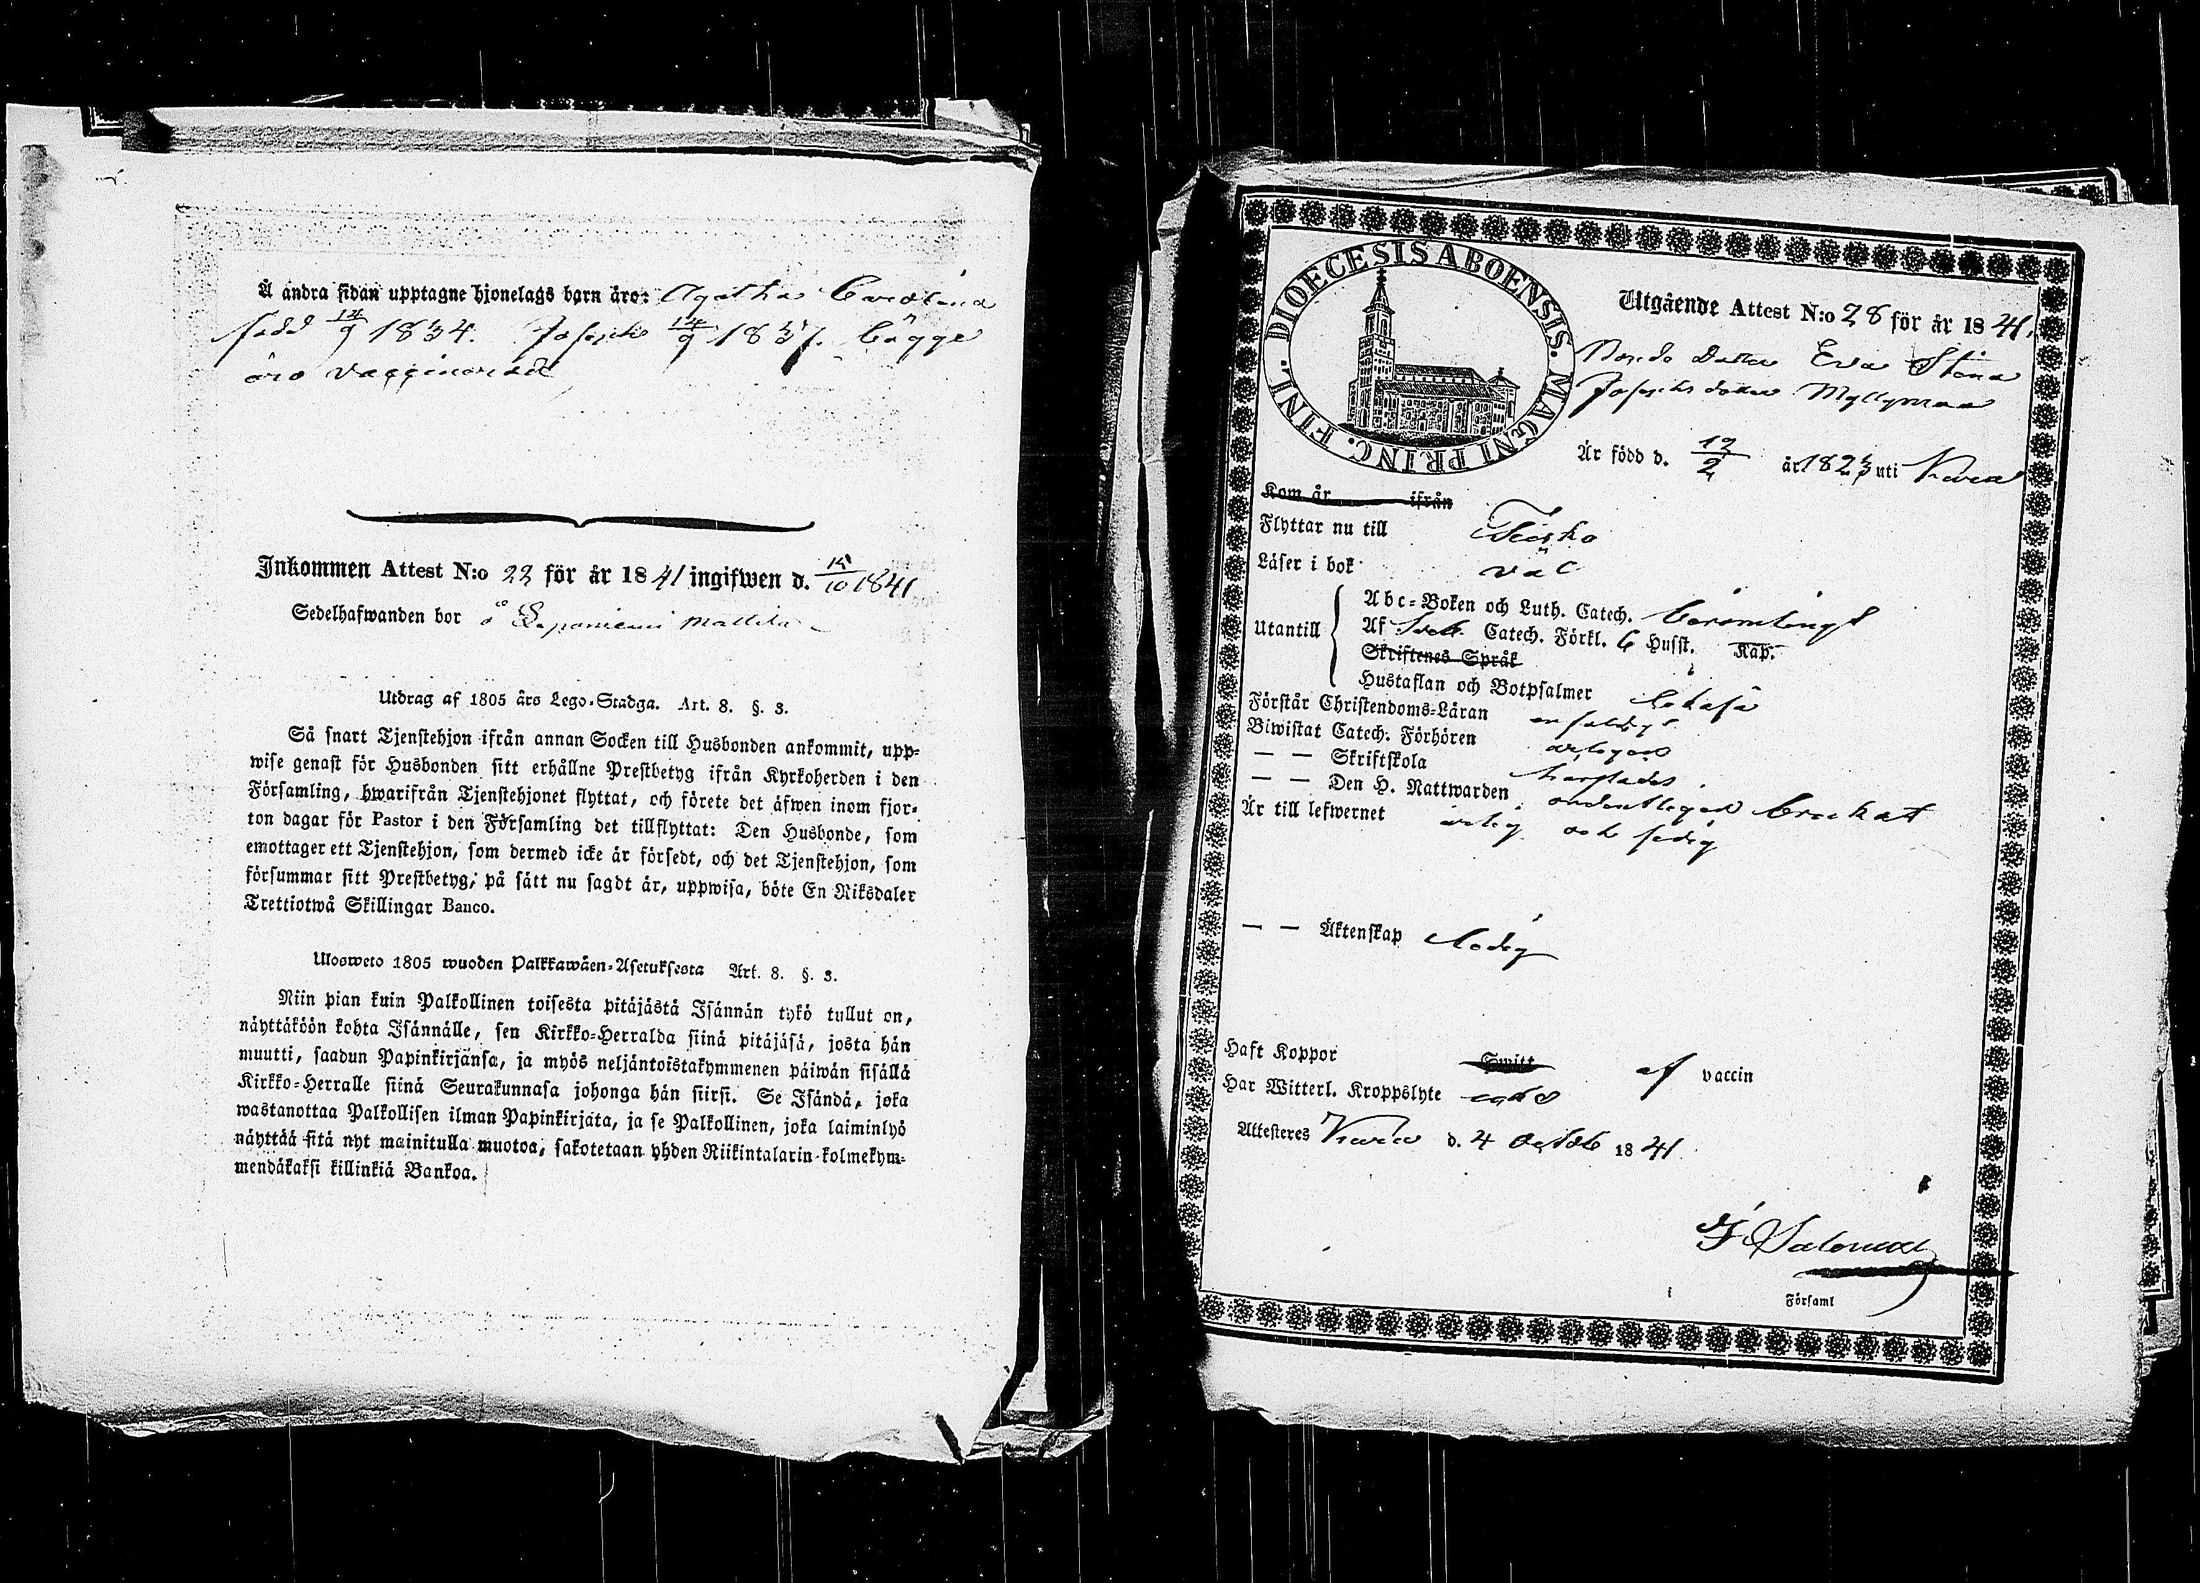 Å andra sidan upptagne hjonelags barn äro: Agatha Carolina
född 14/9 1834. Joseph 14/9 1837. bägge
äro vaccinerade
Inkommen Attest N:o 22 för år 1841 ingifwen d. 15/10 1841
Sedelhafwanden bor å Mattila
Utdrag af 1805 års Lego-Stadga. Art. 8. §. 3.
Så snart Tjenstehjon ifrån annan Socken till Husbonden ankommit, upp-
wise genast för Husbonden sitt erhållne Prestbetyg ifrån Kyrkoherden i den
Församling, hwarifrån Tjenstehjonet flyttat, och förete det äfwen inom fjor-
ton dagar för Pastor i den Församling det tillflyttat: Den Husbonde, som
emottager ett Tjenstehjon, som dermed icke är försedt, och det Tjenstehjon, som
försummar sitt Prestbetyg, på sätt nu sagdt är, uppwisa, böte En Riksdaler
Trettiotwå Skillingar Banco.
Ulosweto 1805 wuoden Palkkawäen-Asetuksesta Art. 8. §. 3.
Niin pian kuin Palkollinen toisesta pitäjästä Isännän tykö tullut on,
näyttäköön kohta Isännälle, sen Kirkko-Herralda siinä pitäjäsä, josta hän
muutti, saadun Papinkirjansa, ja myös neljäntoistakymmenen päiwän sisällä
Kirkko-Herralle siinä Seurakunnasa johonga hän siirsi. Se Isändä, joka
wastanottaa Palkollisen ilman Papinkirjata, ja se Palkollinen, joka laiminlyö
näyttää sitä nyt mainitulla muotoa, sakotetaan yhden Riikintalarin kolmekym-
mendäkaksi killinkiä Bankoa.
DIOECESIS ABOENSIS. MAGNI PRINC. FINL.
Utgående Attest N:o 28 för år 1841.
Bonde Dotter Eva Stina
Josephsdotter Myllymaa
Är född d. 12/2 år 1823 uti Kuru
Kom år ifrån
Flyttar nu till Teisko
Läser i bok väl
Utantill
Abc-Boken och Luth. Catech. berömligt
Af Sveb. Catech. Förkl. 6 Husst. Kap.
Skriftenes Språk
Hustaflan och Botpsalmer likaså
Förstår Christendoms-Läran enfaldigt
Biwistat Catech. Förhören årligen
— — Skriftskola härstädes
— — Den H. Nattwarden ordentligen brukat
Är till lefwernet ärlig och sedig
— — Äktenskap ledig
Haft Koppor Switt af vaccin
Har Witterl. Kroppslyte
Attesteres Kuru d. 4 Octob 1841.
Församl